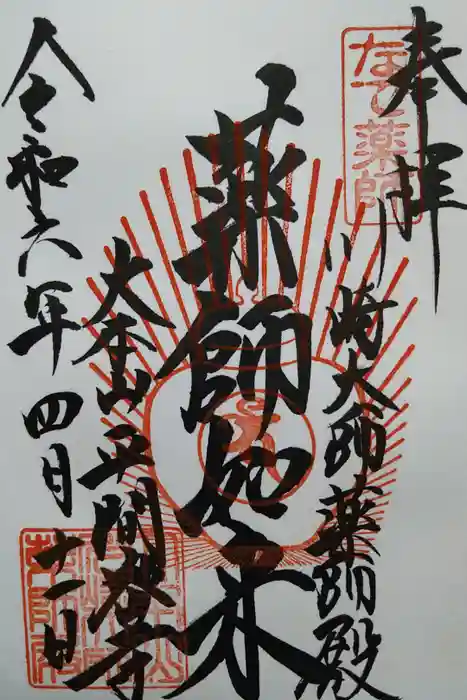 奉拝
なで薬師
川崎大師薬師殿
薬師如来
大本山平間教寺
令和六年四月十一日